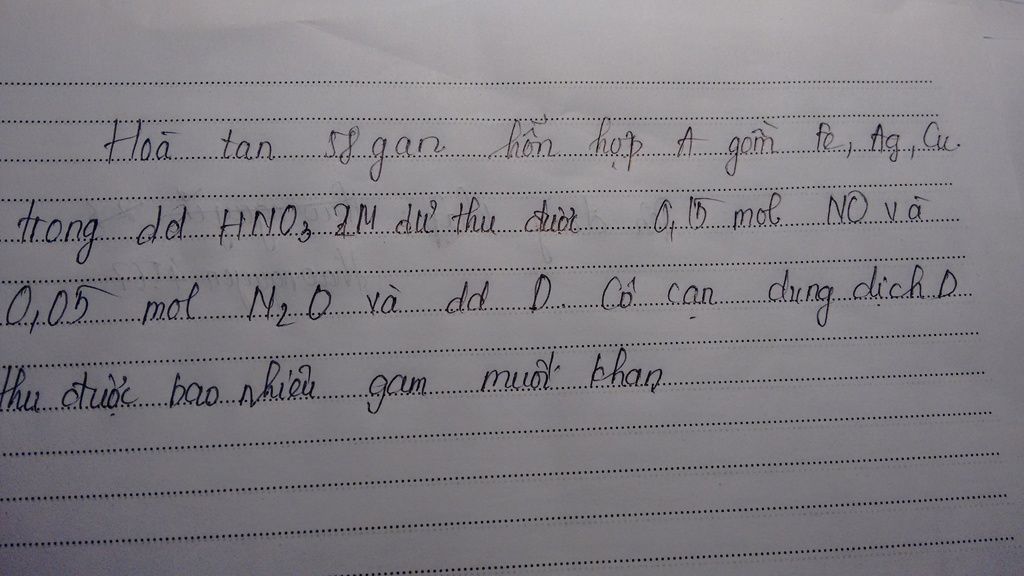 Hoà tan 58 gan hỗn hợp A gồm Fe, Ag, Cu.
trong dd HNO3 2M dư thu được 0,15 mol NO và
0,05 mol N2O và dd D. Cô cạn dung dịch D
thu được bao nhiêu gam muối khan